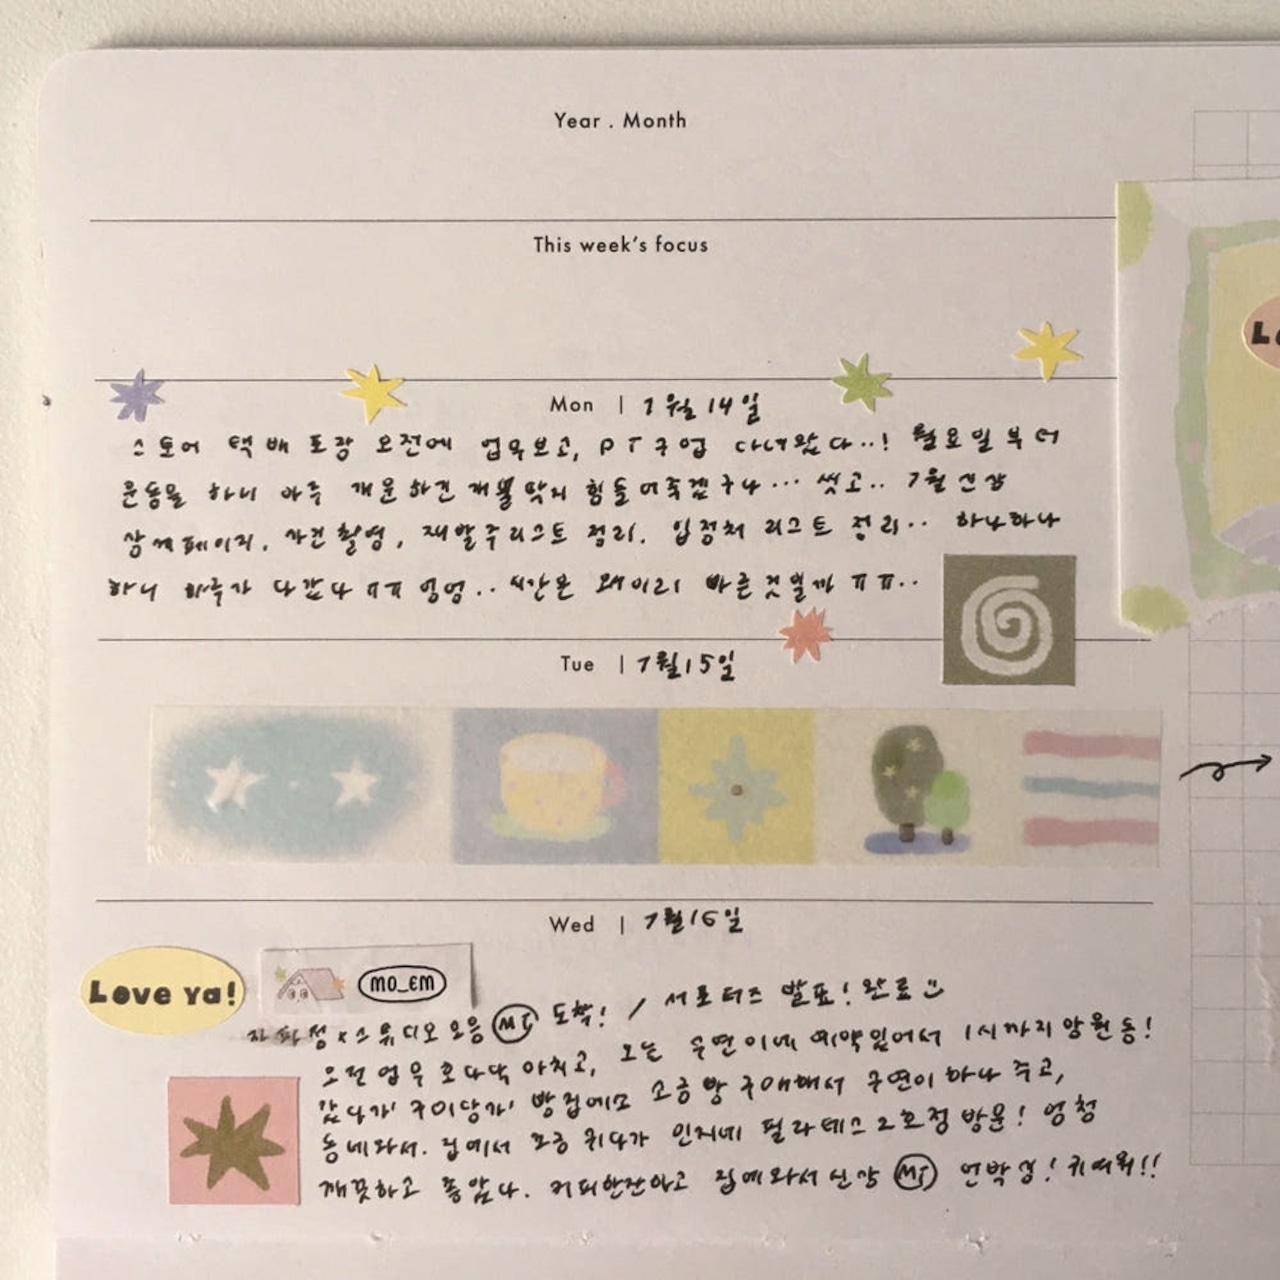 Year . Month
This week's focus
Mon | 7월 14일
스토어 택배 포장 오전에 업무보고, PT수업 다녀왔다..! 월요일부터
운동을 하니 아주 개운하긴 개뿔 딱지 힘들어죽겠구나... 씻고.. 7월 신상
상세페이지, 사진촬영, 재발주리스트 정리, 입점처 리스트 정리.. 하나하나
하니 하루가 다갔다 ㅠㅠ 엉엉.. 시간은 왜이리 빠른것일까 ㅠㅠ..
Tue | 7월 15일
Wed | 7월 16일
Love ya!
MO_EM
스튜디오모음 MT 도착! / 서포터즈 발표! 완료
오전 업무 후다닥 마치고, 오늘 수연이네 예약있어서 1시까지 망원동!
갔다가 '구이당가' 빵집에서 소금빵 구매해서 수연이 하나 주고,
동네와서. 집에서 조금 쉬다가 인지네 필라테스 2호점 방문! 엄청
깨끗하고 좋았다. 커피한잔하고 집에와서 신상 MT 언박싱! 귀여워!!
L